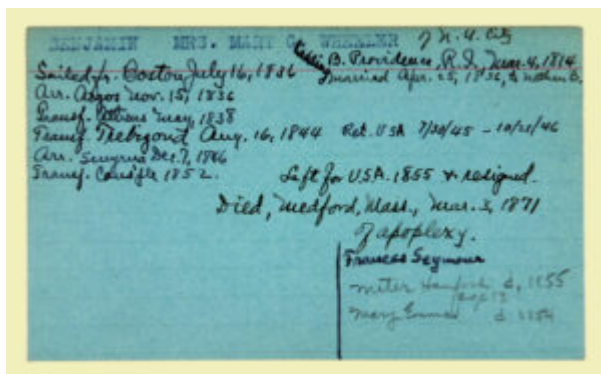 BENJAMIN MRS. MARY G. WHEELER of N.Y. City
B. Providence, R.I., Mar. 4, 1814
Sailed fr. Boston July 16, 1836 married Apr. 25, 1836, to Nathan B.
Arr. Argos Nov. 15, 1836
Transf. Athens May, 1838
Transf. Trebizond Aug. 16, 1844 Ret. USA 7/30/45 - 10/21/46
Arr. Smyrna Dec. 7, 1846
Transf. Const'ple 1852. Left for USA. 1855 & resigned.
Died, Medford, Mass., Mar. 3, 1871
of apoplexy.
Frances Seymour
d. 1855
Mary d. 1854